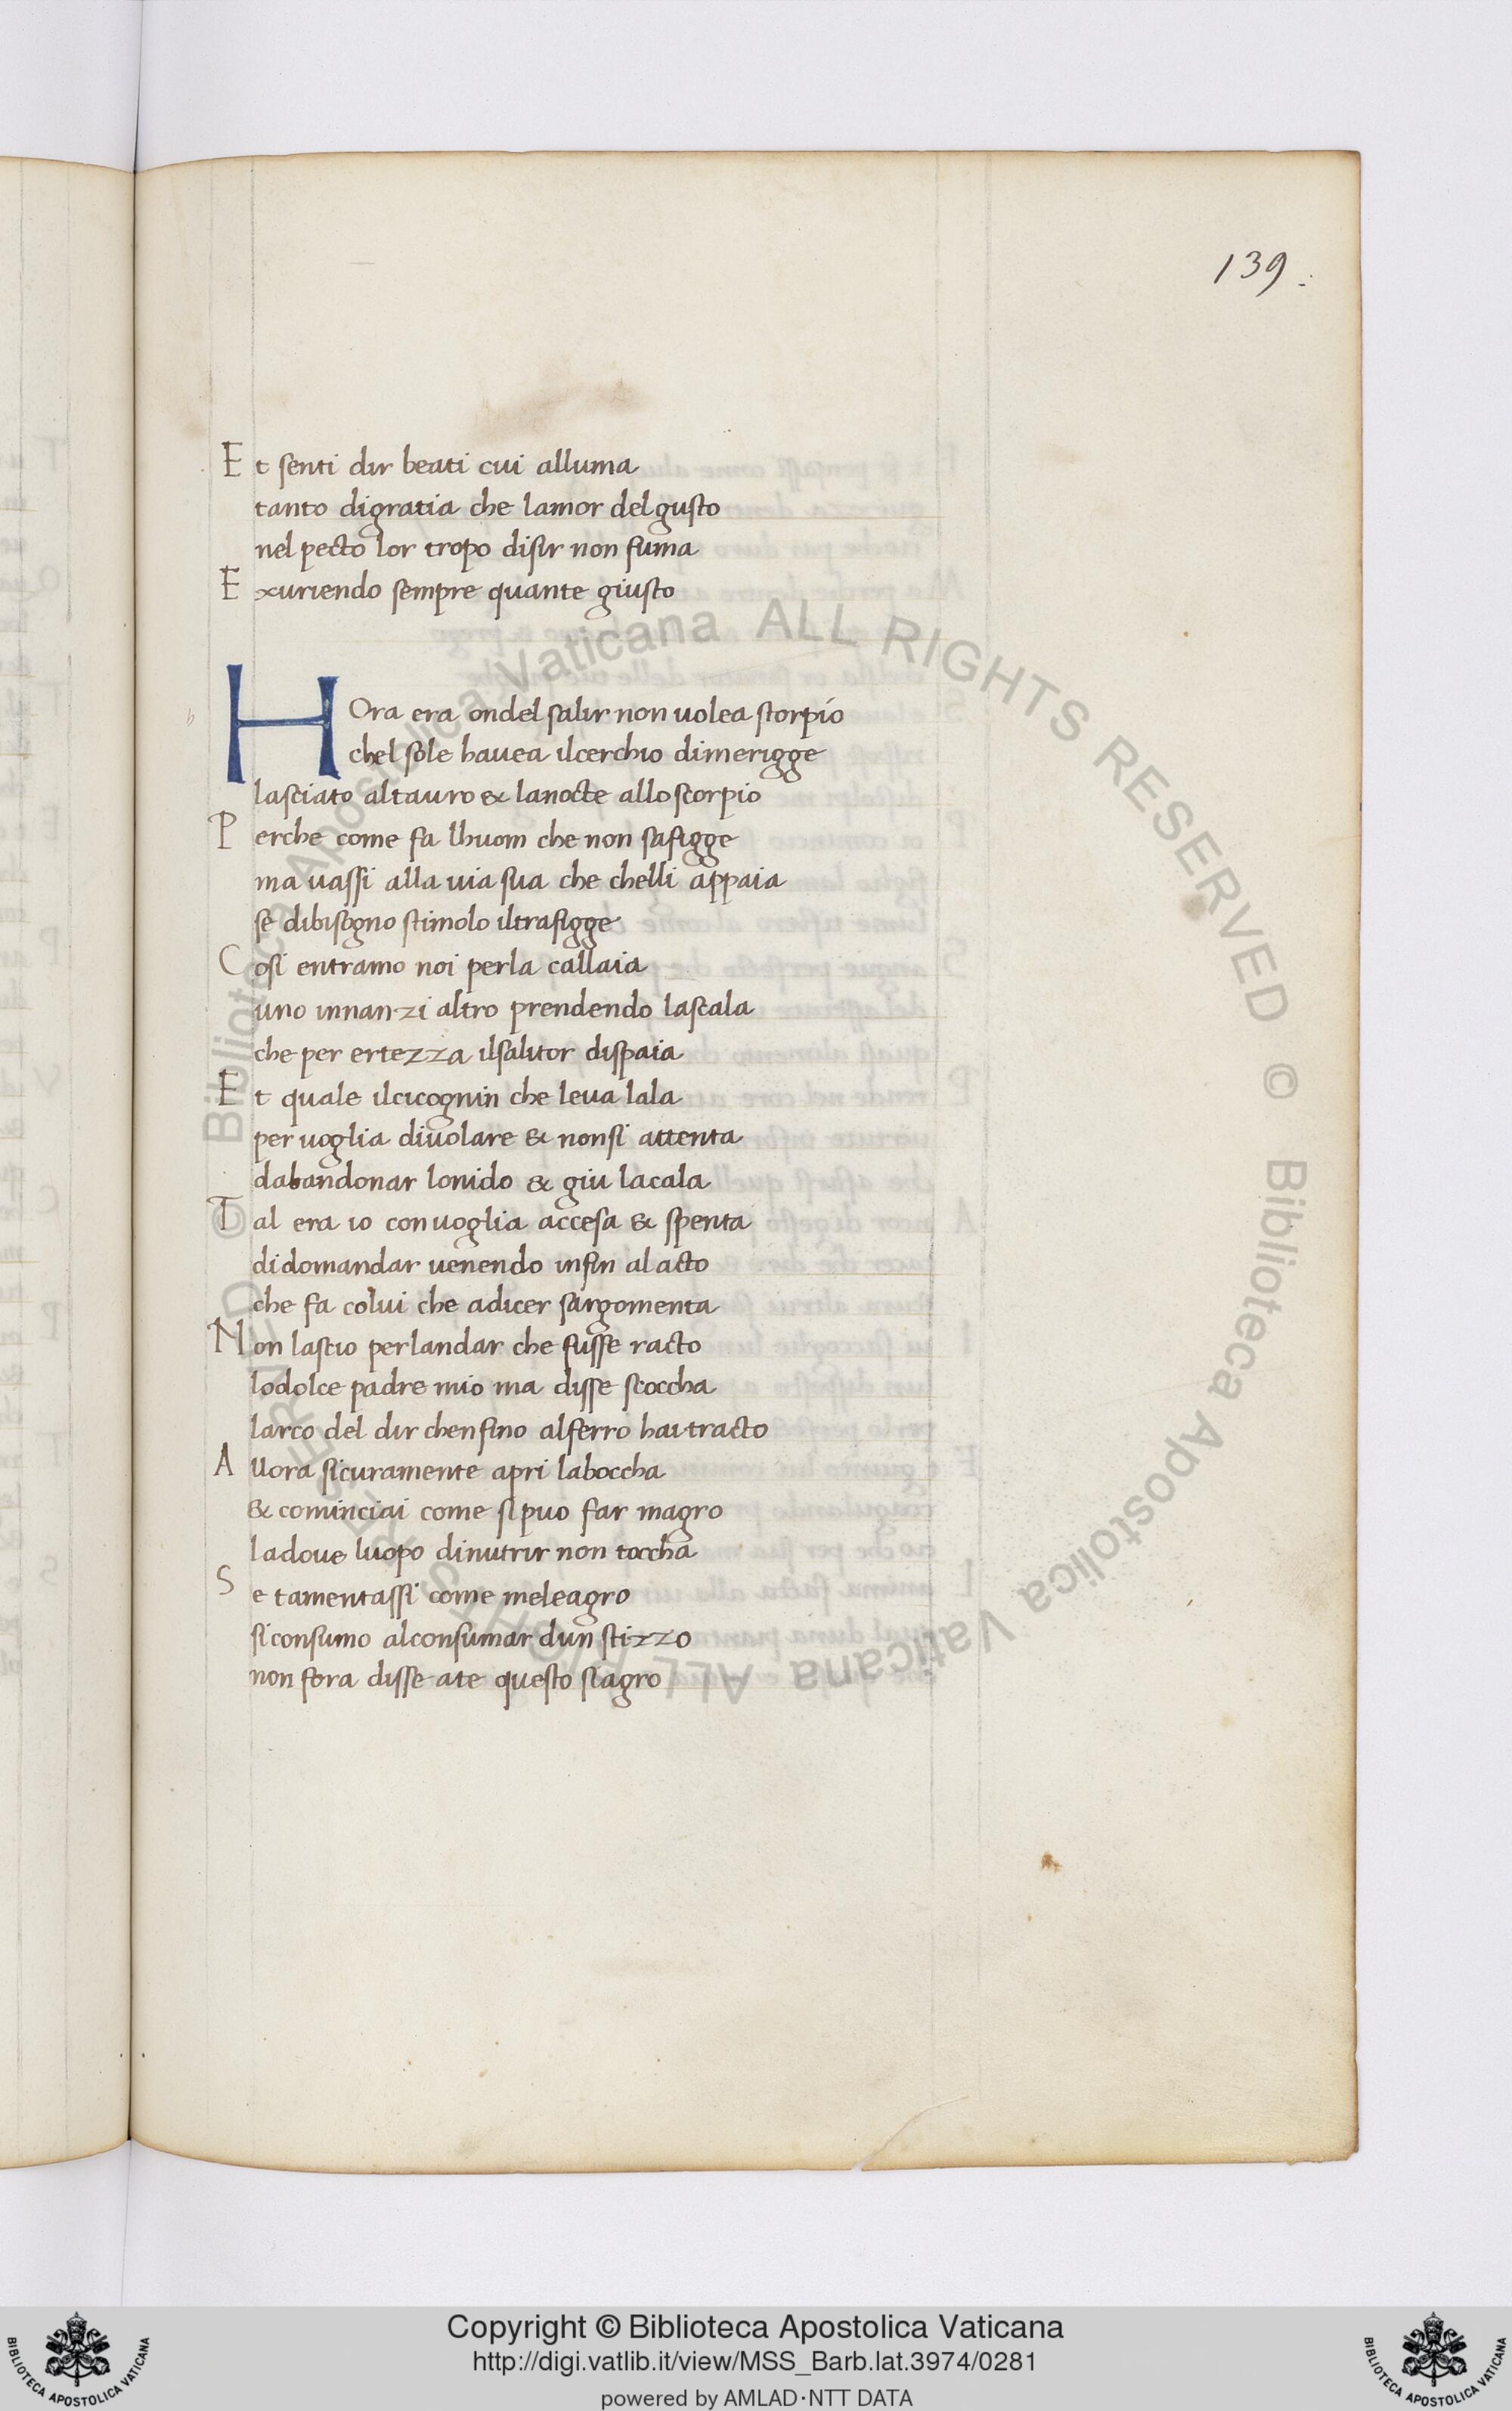 139.
Et senti dir beati cui alluma
tanto digratia che lamor delgusto
nel pecto lor tropo disir non fuma
Exuriendo sempre quante giusto
HOra era ondel salir non uolea storpio
chel sole hauea ilcerchio dimerigge
lasciato altauro & lanocte alloscorpio
Perche come fa lhuom che non safigge
ma vassi alla uia sua che chelli appaia
se dibisogno stimolo iltrafigge
Cosi entramo noi perla callaia
uno innanzi altro prendendo lascala
che per ertezza ilsalitor dispaia
Et quale ilcicognin che leua lala
per uoglia diuolare & nonsi attenta
dabandonar lonido & giu lacala
Tal era io con uoglia accesa & spenta
didomandar uenendo infin al acto
che fa colui che adicer sargomenta
Non lascio perlandar che fusse racto
lodolce padre mio ma disse scoccha
larco del dir chenfino alferro hai tracto
Allora sicuramente apri laboccha
& cominciai come si puo far magro
ladoue luopo dinutrir non toccha
Se tamentassi come meleagro
siconsumo alconsumar dun stizzo
non fora disse ate questo siagro
© Biblioteca Apostolica Vaticana ALL RIGHTS RESERVED © Biblioteca Apostolica Vaticana ALL RIGHTS RESERVED
Copyright © Biblioteca Apostolica Vaticana
http://digi.vatlib.it/view/MSS_Barb.lat.3974/0281
powered by AMLAD·NTT DATA
BIBLIOTECA APOSTOLICA VATICANA
BIBLIOTECA APOSTOLICA VATICANA